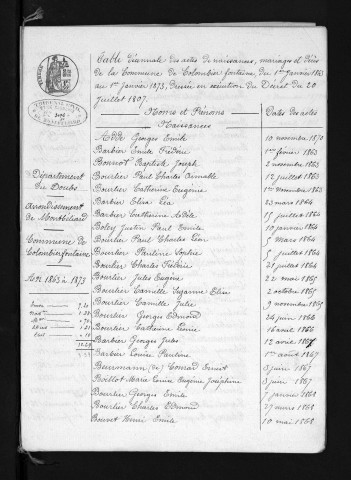 Table décennale des actes de naissances, mariages et décès
de la Commune de Colombier fontaine, du 1er Janvier 1863
au 1er Janvier 1873, dressée en exécution du Décret du 20
Juillet 1807.
Noms et Prénoms
Dates des actes
Naissances
Département
du Doubs
Arrondissement
de Montbéliard
Commune de
Colombier fontaine
1863 à 1873
Abdé Georges Emile 10 novembre 1870
Barbier Emile Frédéric 1er février 1863
Bonnot Baptiste Joseph 2 novembre 1863
Bourlier Paul Charles Armable 12 juillet 1863
Bourlier Catherine Eugénie 1er Novembre 1863
Barbier Eliza Léa 23 mars 1864
Barbier Catherine Adèle 15 juillet 1864
Boley Justin Paul Emile 10 janvier 1864
Bourlier Paul Charles Léon 5 Mars 1864
Bourlier Pauline Sophie 5 juillet 1864
Bourlier Charles Frédéric 21 juillet 1864
Bourlier Jules Eugène 22 mai 1865
Bourlier Camille Suzanne Elise 2 octobre 1865
Bourlier Camille Julie 9 novembre 1865
Bourlier Georges Edmond 26 juin 1866
Bourlier Catherine Louise 16 août 1866
Barbier Georges Jules 12 avril 1867
Barbier Louise Pauline 1er août 1867
Beusmann (de) Conrad Ernest 3 juin 1867
Boillot Marie Louise Eugénie Joséphine 8 juin 1867
Bourlier Georges Emile 7 janvier 1868
Bourlier Charles Edmond 27 mars 1868
Bouvet Henri Emile 10 mai 1868